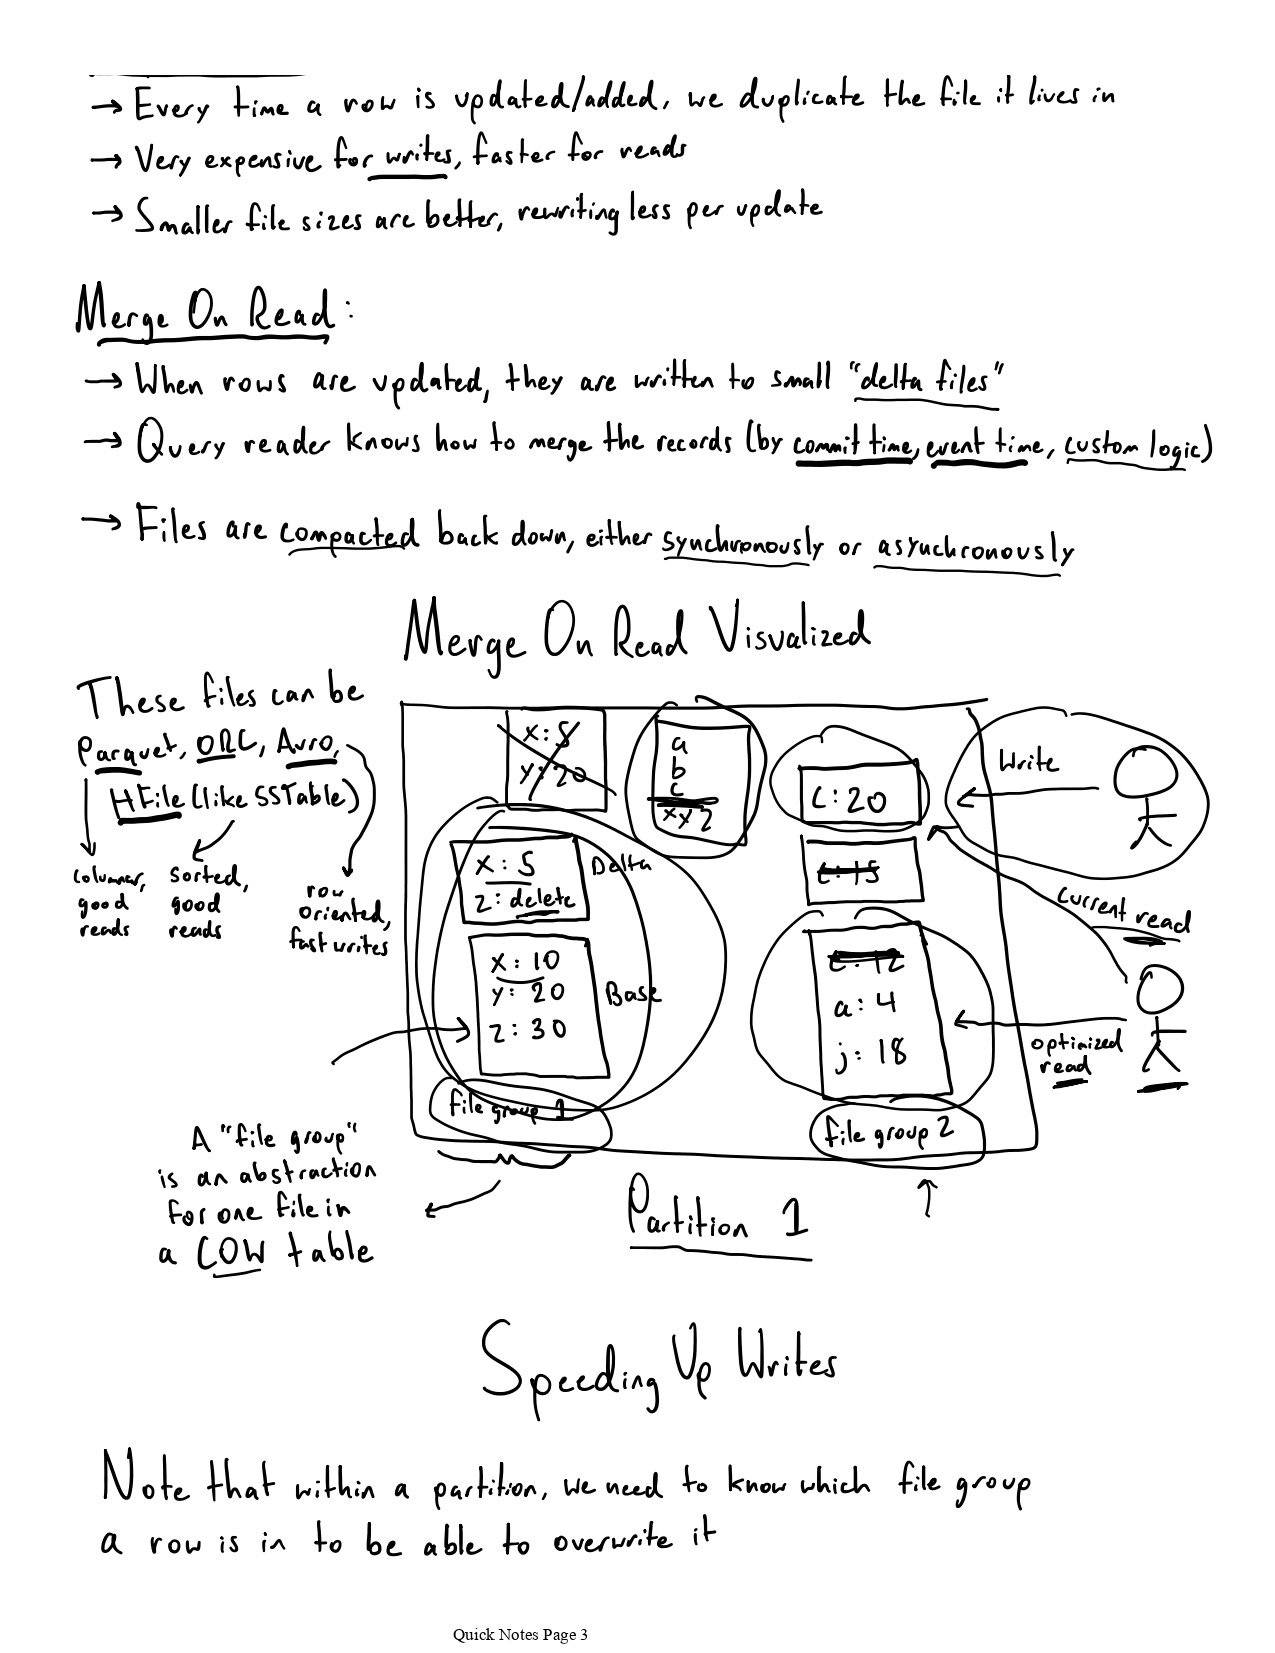 → Every time a row is updated/added, we duplicate the file it lives in
→ Very expensive for writes, faster for reads
→ Smaller file sizes are better, rewriting less per update
Merge On Read:
→ When rows are updated, they are written to small "delta files"
→ Query reader knows how to merge the records (by commit time, event time, custom logic)
→ Files are compacted back down, either synchronously or asynchronously
Merge On Read Visualized
These files can be
Parquet, ORC, Avro,
HFile (like SSTable)
columnar,
good
reads
sorted,
good
reads
row
oriented,
fast writes
x: 5
y: 20
a
b
c
x: 5
z: delete
Delta
x: 10
y: 20
z: 30
Base
file group 1
C: 20
c: 15
c: 12
a: 4
j: 18
file group 2
Write
current read
optimized
read
A "file group"
is an abstraction
for one file in
a COW table
Partition 1
Speeding Up Writes
Note that within a partition, we need to know which file group
a row is in to be able to overwrite it
Quick Notes Page 3